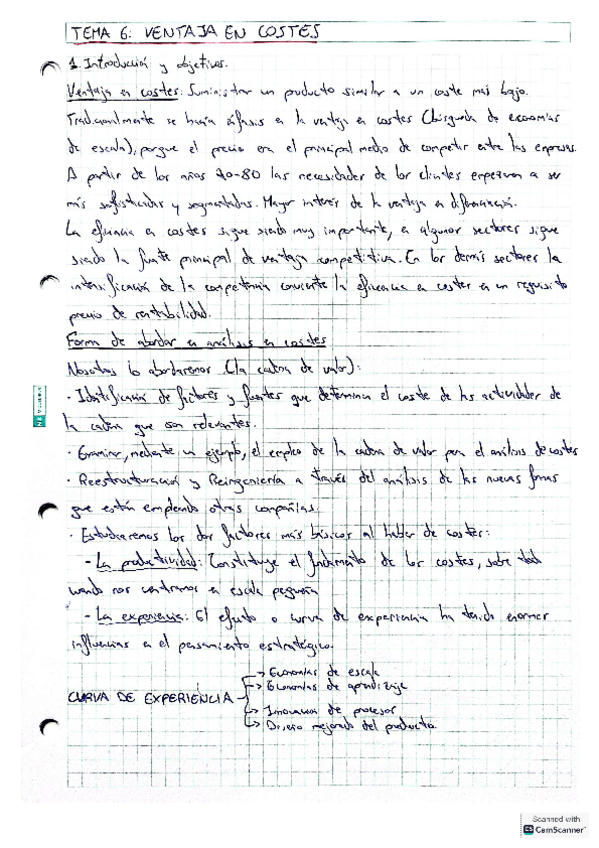 TEMA 6: VENTAJA EN COSTES
1. Introducción y objetivos.
Ventaja en costes: Suministrar un producto similar a un coste más bajo.
Tradicionalmente se hacía énfasis en la ventaja en costes (búsqueda de economías
de escala), porque el precio era el principal medio de competir entre las empresas.
A partir de los años 70-80 las necesidades de los clientes empezaron a ser
más sofisticadas y segmentadas. Mayor interés de la ventaja en diferenciación.
La eficiencia en costes sigue siendo muy importante, en algunos sectores sigue
siendo la fuente principal de ventaja competitiva. En los demás sectores la
intensificación de la competencia convierte la eficiencia en costes en un requisito
previo de rentabilidad.
Forma de abordar en análisis en costes
Nosotros lo abordaremos (la cadena de valor):
· Identificación de factores y fuentes que determina el coste de las actividades de
la cadena que son relevantes.
· Examinar, mediante un ejemplo, el empleo de la cadena de valor para el análisis de costes
· Reestructuración y Reingeniería a través del análisis de las nuevas formas
que están empleando otras compañías.
· Estudiaremos los dos factores más básicos al hablar de costes:
- La productividad: Constituye el fundamento de los costes, sobre todo
cuando nos centramos en escala pequeña
- La experiencia: El efecto o curva de experiencia ha tenido enormes
influencias en el pensamiento estratégico.
CURVA DE EXPERIENCIA
-> Economías de escala
-> Economías de aprendizaje
-> Innovación de procesos
-> Diseño mejorado del producto.
Scanned with
CS CamScanner